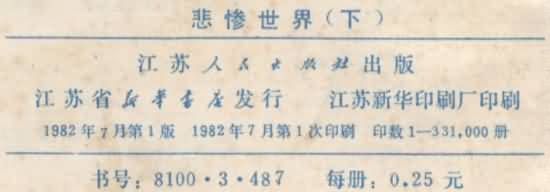 悲惨世界（下）
江苏人民出版社出版
江苏省新华书店发行 江苏新华印刷厂印刷
1982年7月第1版 1982年7月第1次印刷 印数1—331,000册
书号：8100·3·487 每册：0.25元